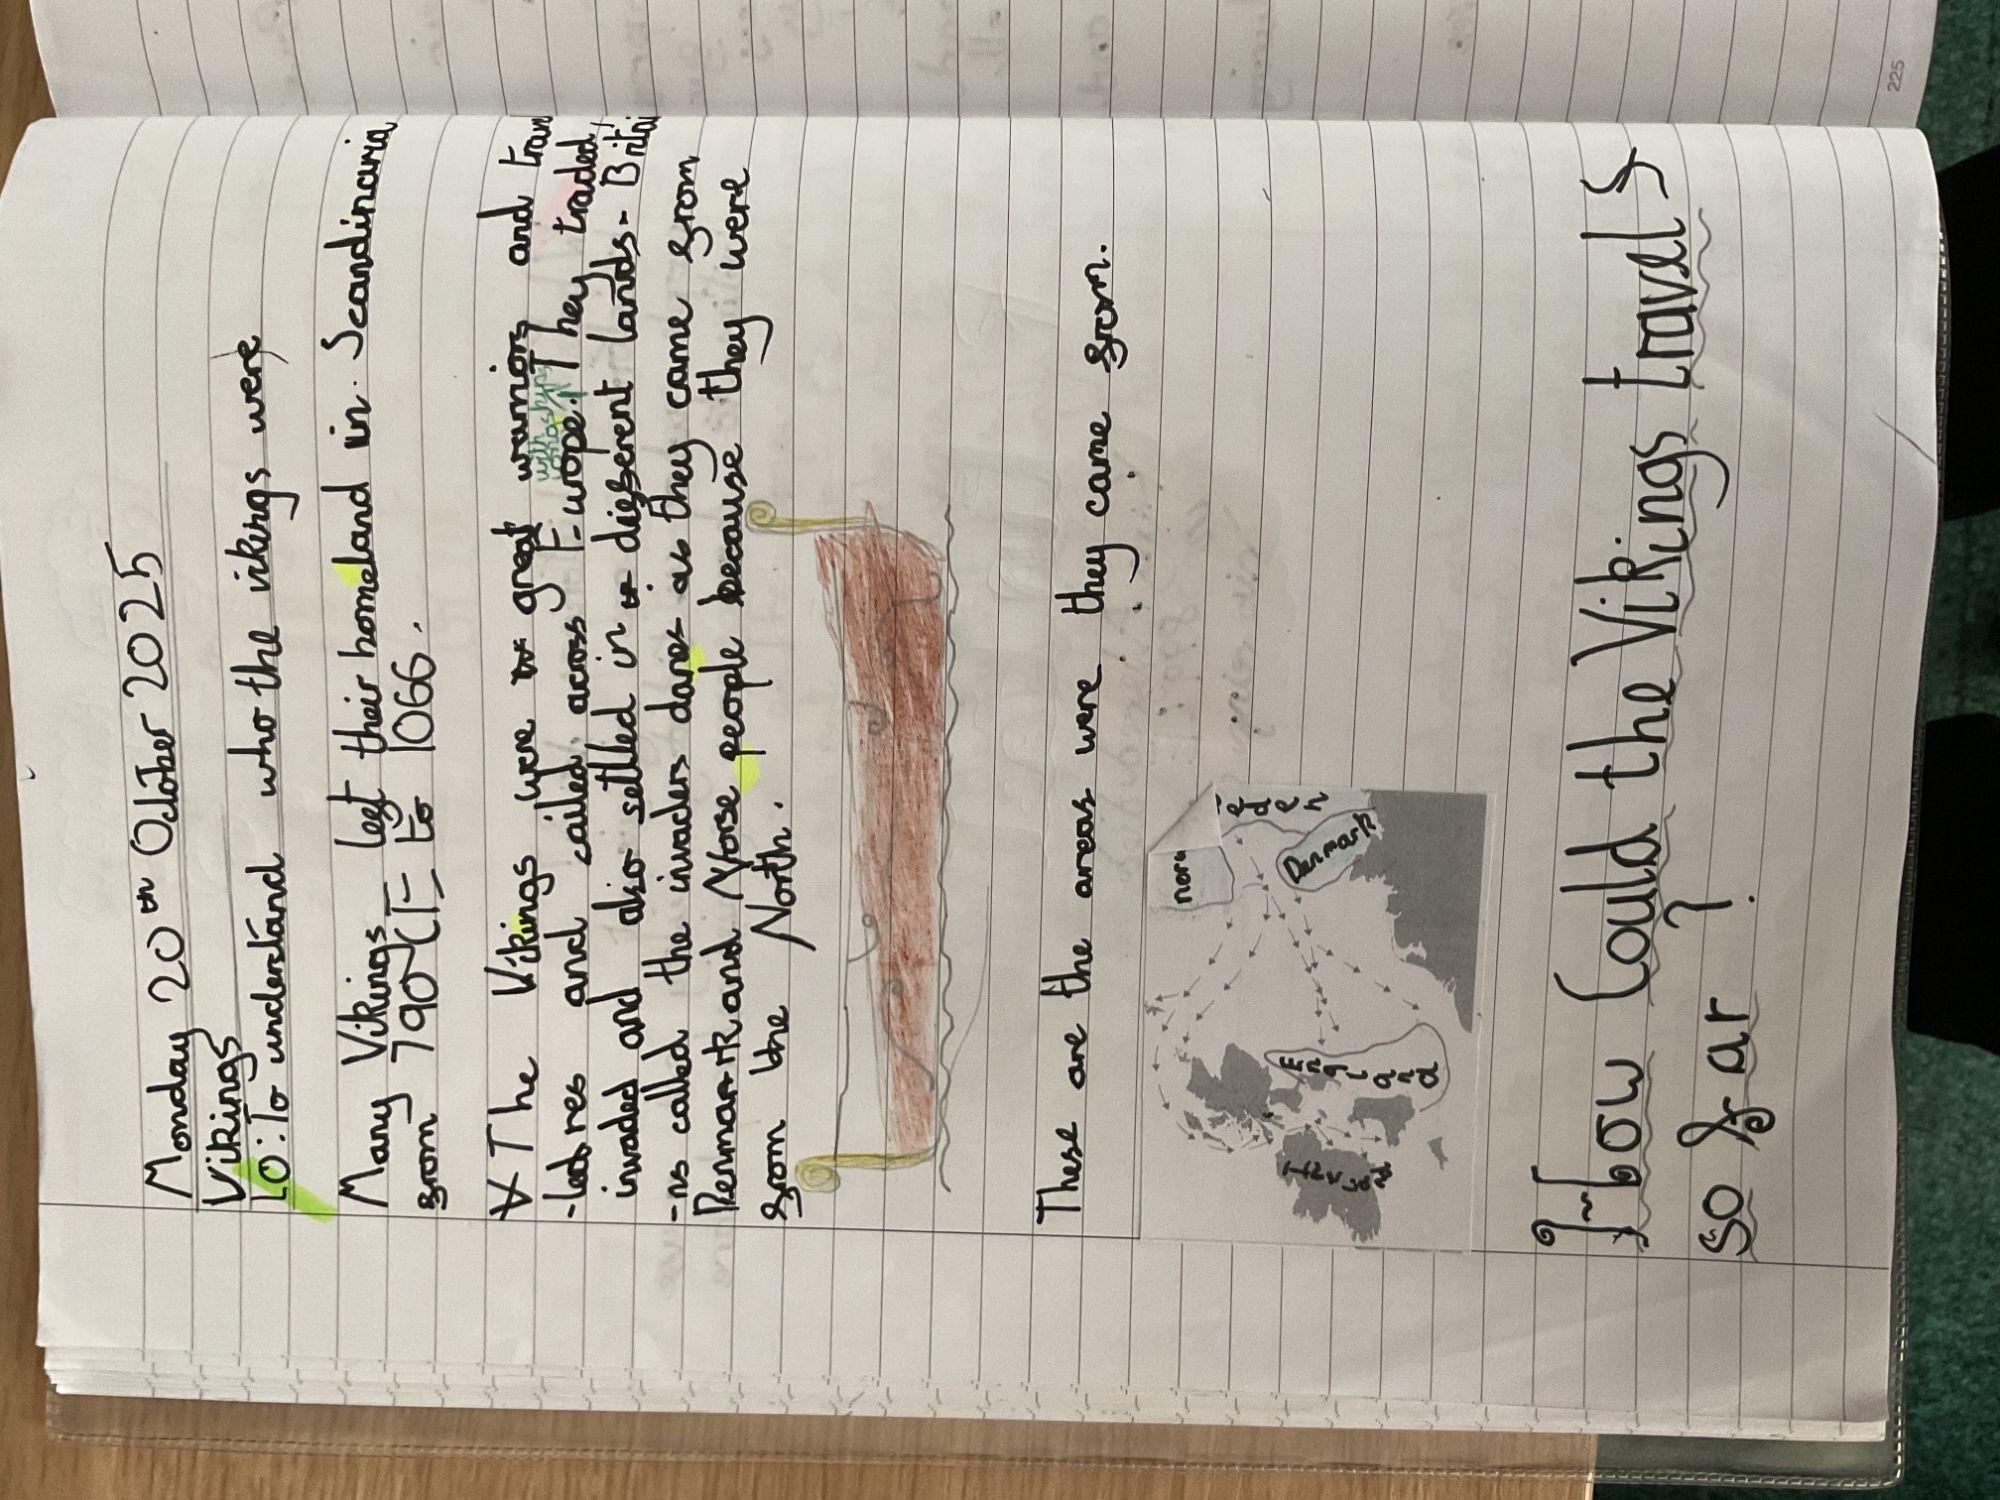 Monday 20th October 2025
Vikings
LO: To understand who the vikings were
Many Vikings left their homeland in. Scandinavia
from 790 CE to 1066.
The Vikings were great warriors and trav
-lours and called across Europe. They traded,
with ships
invaded and also settled in different lands - Britai
-ns called the invaders danes as they came from
Denmark and Norse people because they were
from the North.
These are the areas were they came from.
norw
eden
Denmark
England
How Could the Vikings travel
so far?
225